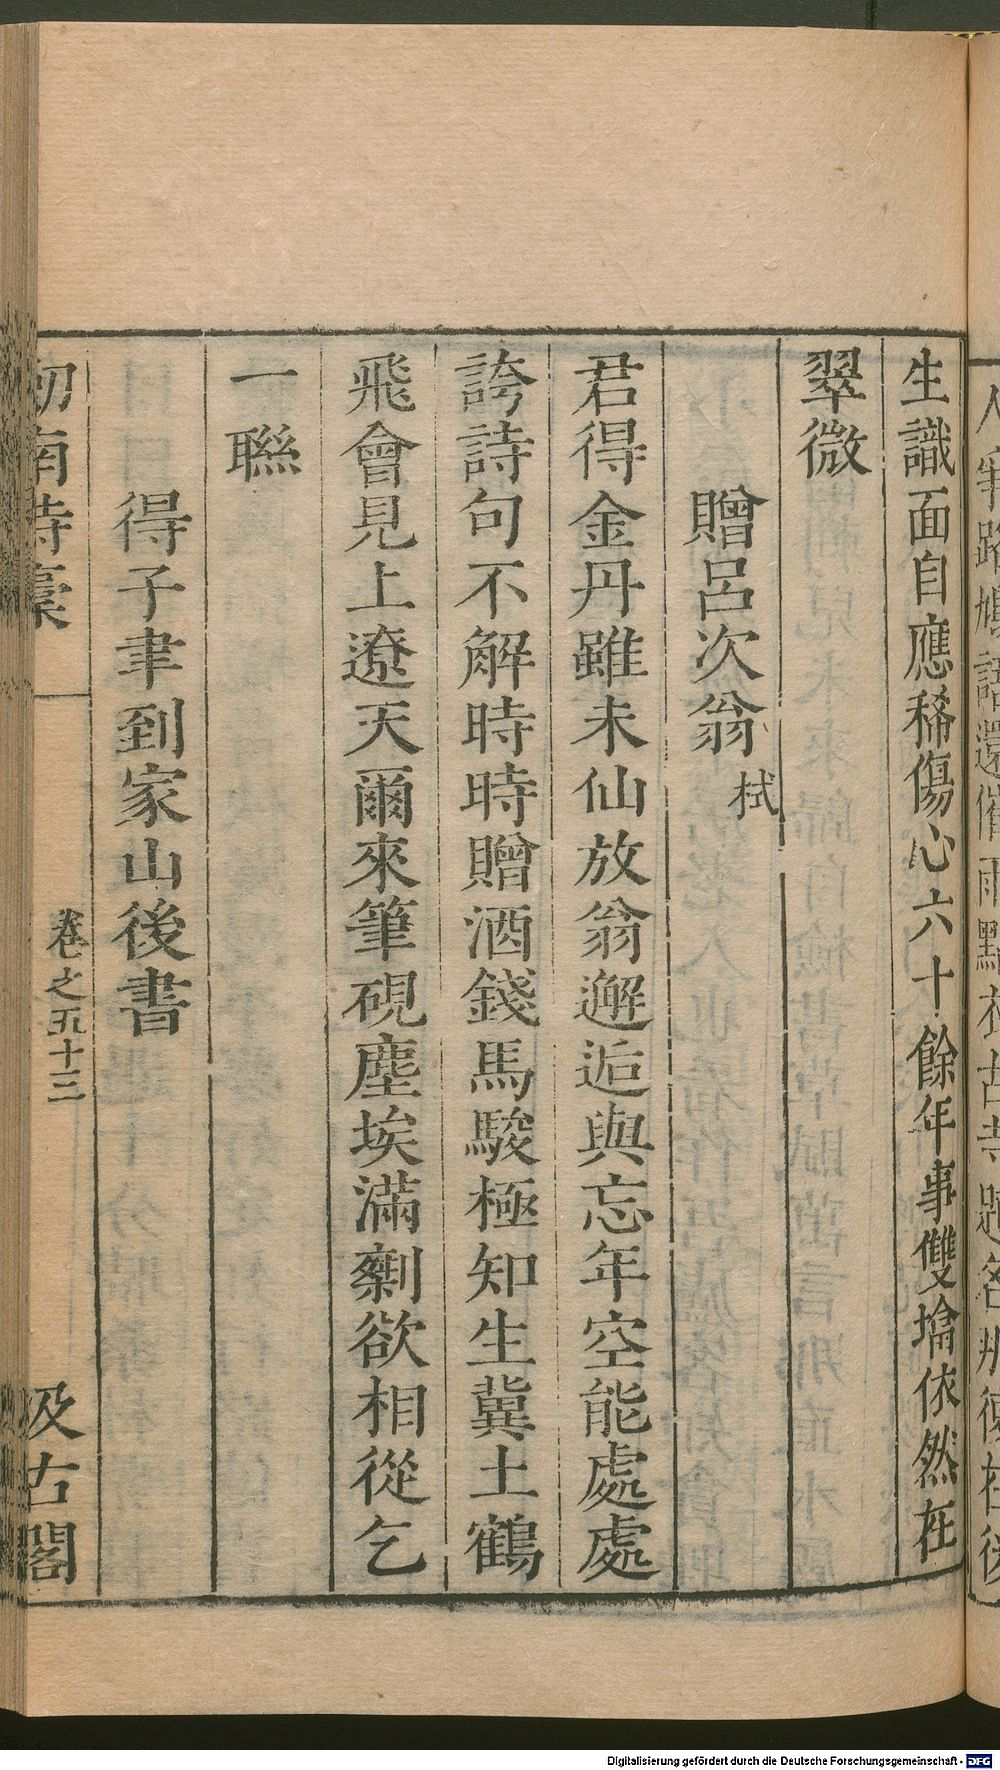 生識面自應稀傷心六十餘年事雙墖依然在
翠微
贈呂次翁栻
君得金丹雖未仙放翁邂逅與忘年空能處處
誇詩句不解時時贈酒錢馬駿極知生冀土鶴
飛會見上遼天爾來筆硯塵埃滿剩欲相從乞
一聯
得子聿到家山後書
劒南詩稾
卷之五十三
汲古閣
Digitalisierung gefördert durch die Deutsche Forschungsgemeinschaft - DFG